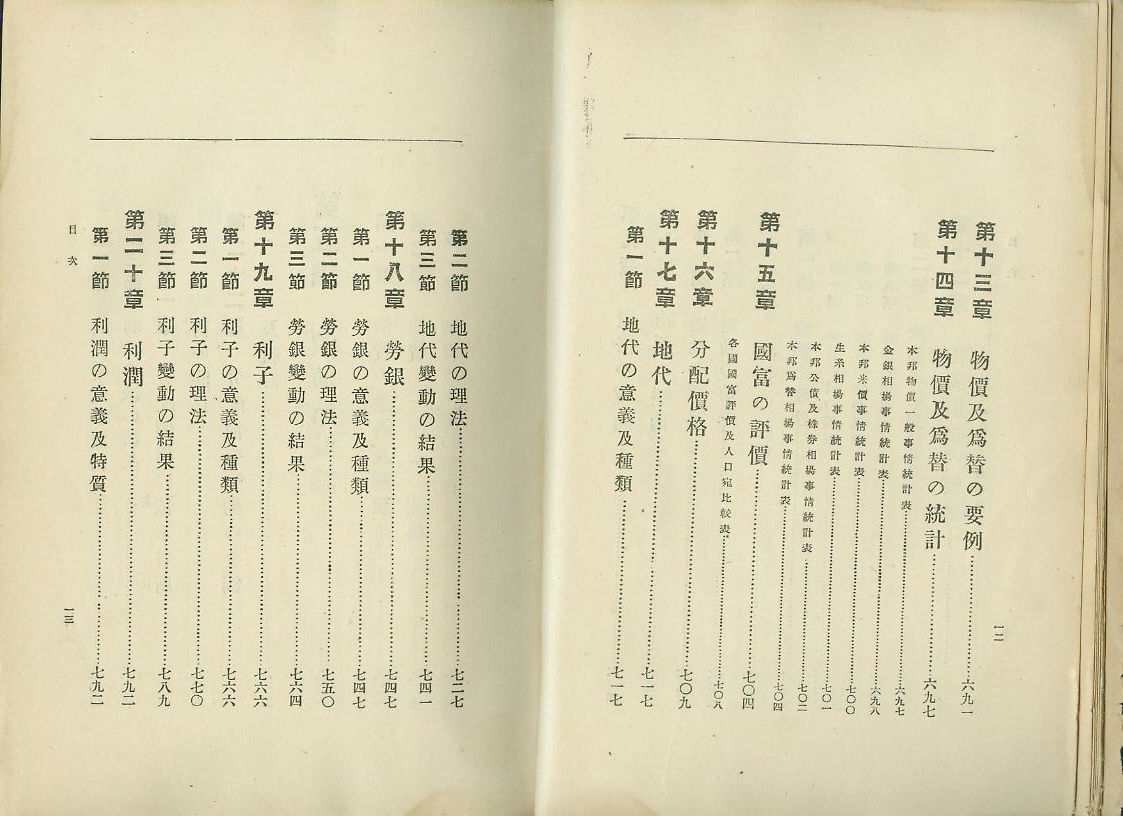 第十三章 物價及爲替の要例……六九一
第十四章 物價及爲替の統計……六九七
本邦物價一般事情統計表……六九七
金銀相場事情統計表……六九八
本邦米價事情統計表……七〇〇
生糸相場事情統計表……七〇一
本邦公債及株券相場事情統計表……七〇二
本邦爲替相場事情統計表……七〇四
第十五章 國富の評價……七〇四
各國國富評價及人口宛比較表……七〇八
第十六章 分配價格……七〇九
第十七章 地代……七一七
第一節 地代の意義及種類……七一七
一二
第二節 地代の理法……七二七
第三節 地代變動の結果……七四一
第十八章 勞銀……七四七
第一節 勞銀の意義及種類……七四七
第二節 勞銀の理法……七五〇
第三節 勞銀變動の結果……七六四
第十九章 利子……七六六
第一節 利子の意義及種類……七六六
第二節 利子の理法……七七〇
第三節 利子變動の結果……七八九
第二十章 利潤……七九二
第一節 利潤の意義及特質……七九二
目次
一三